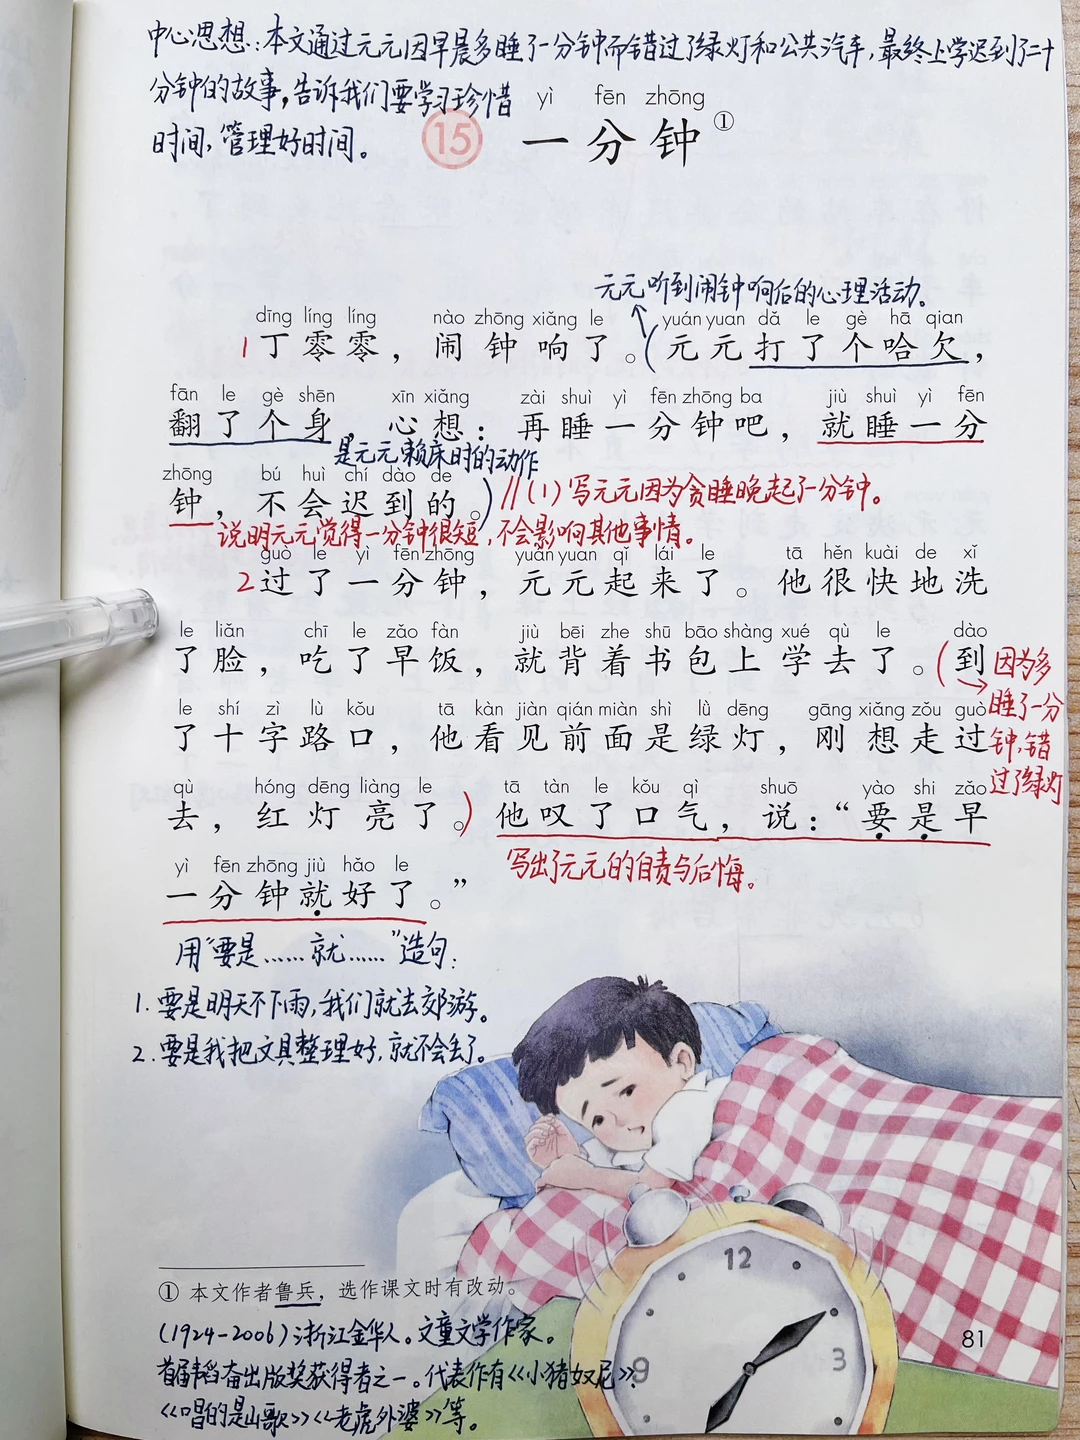 中心思想：本文通过元元因早晨多睡了一分钟而错过了绿灯和公共汽车，最终上学迟到了二十
分钟的故事，告诉我们要学习珍惜
时间，管理好时间。
yì fēn zhōng
15 一分钟①
元元听到闹钟响后的心理活动。
dīng líng líng nào zhōng xiǎng le yuán yuan dǎ le gè hā qian
1丁零零，闹钟响了。（元元打了个哈欠，
fān le gè shēn xīn xiǎng zài shuì yì fēn zhōng ba jiù shuì yì fēn
翻了个身，心想：再睡一分钟吧，就睡一分
是元元赖床时的动作
zhōng bú huì chí dào de
钟，不会迟到的。）//(1)写元元因为贪睡晚起了一分钟。
说明元元觉得一分钟很短，不会影响其他事情。
guò le yì fēn zhōng yuán yuan qǐ lái le tā hěn kuài de xǐ
2过了一分钟，元元起来了。他很快地洗
le liǎn chī le zǎo fàn jiù bēi zhe shū bāo shàng xué qù le dào
了脸，吃了早饭，就背着书包上学去了。（到
因为多
睡了一分
钟，错
过了绿灯
le shí zì lù kǒu tā kàn jiàn qián miàn shì lǜ dēng gāng xiǎng zǒu guò
了十字路口，他看见前面是绿灯，刚想走过
qù hóng dēng liàng le tā tàn le kǒu qì shuō yào shi zǎo
去，红灯亮了。）他叹了口气，说：“要是早
写出了元元的自责与后悔。
yì fēn zhōng jiù hǎo le
一分钟就好了。”
用“要是……就……”造句：
1.要是明天不下雨，我们就去郊游。
2.要是我把文具整理好，就不会丢了。
12
3
9
① 本文作者鲁兵，选作课文时有改动。
(1924-2006)浙江金华人。文童文学作家。
首届韬奋出版奖获得者之一。代表作有《小猪奴尼》、
《唱的是山歌》《老虎外婆》等。
81